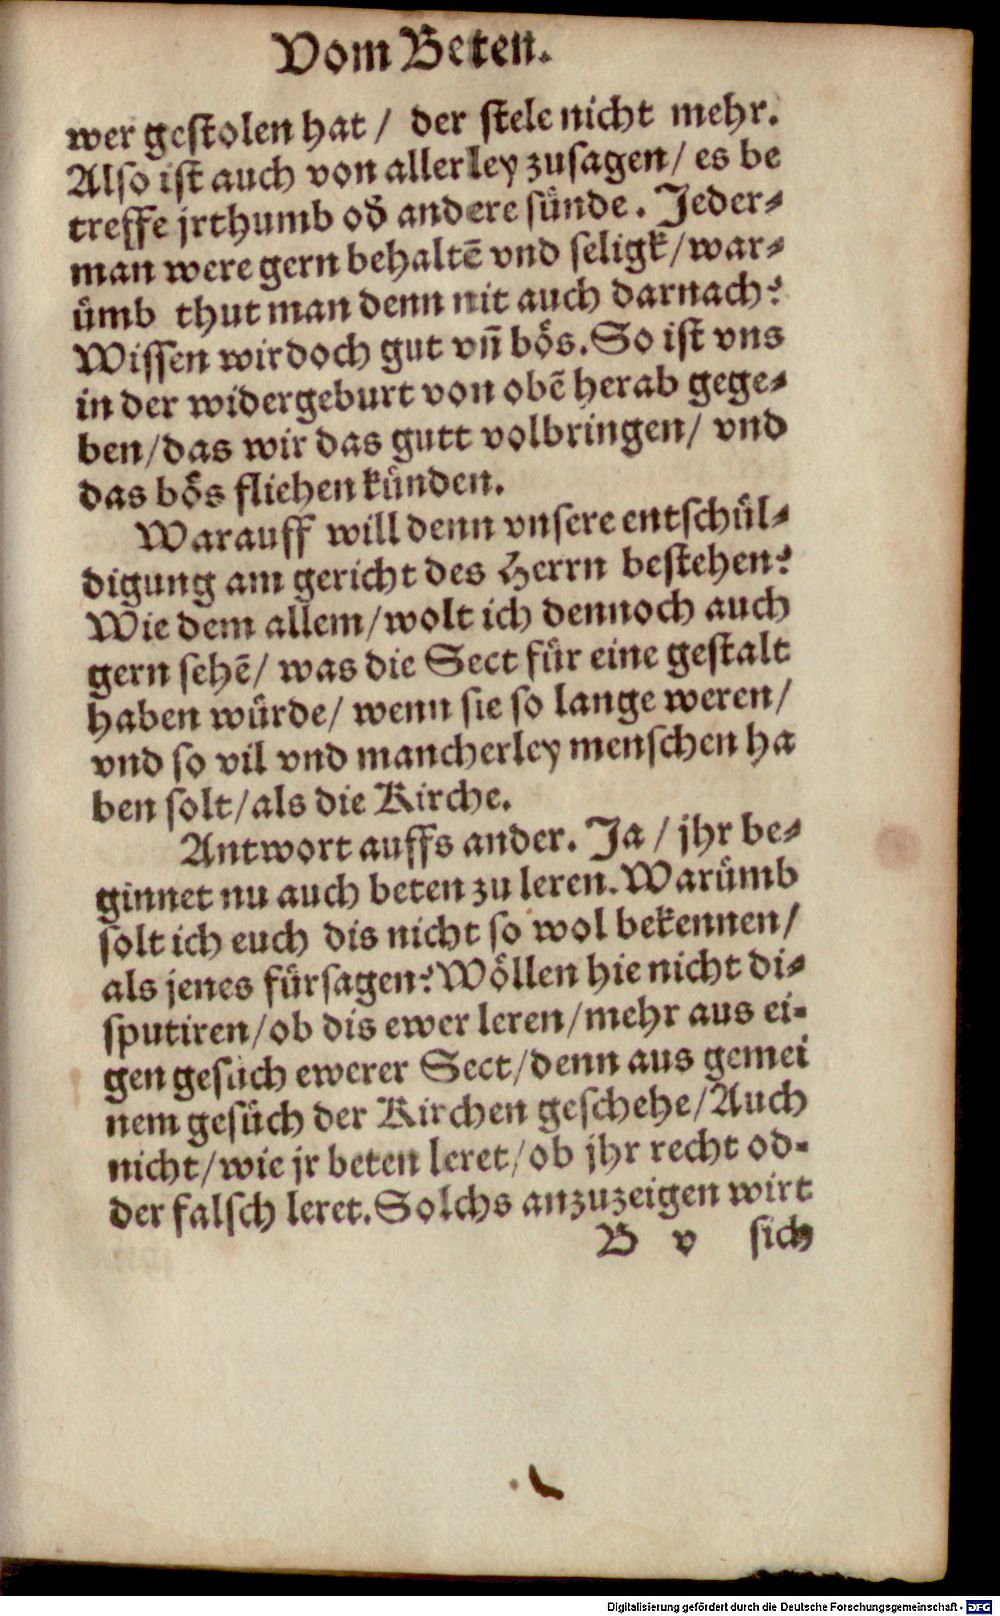 Vom Beten.
wer gestolen hat / der stele nicht mehr.
Also ist auch von allerley zusagen / es be
treffe jrthumb od̄ andere sünde. Jeder⸗
man were gern behaltē vnd seligk / war⸗
ümb thut man denn nit auch darnach?
Wissen wir doch gut vñ bös. So ist vns
in der widergeburt von obē herab gege⸗
ben / das wir das gutt volbringen / vnd
das bös fliehen künden.
Warauff will denn vnsere entschül⸗
digung am gericht des Herrn bestehen?
Wie dem allem / wolt ich dennoch auch
gern sehē / was die Sect für eine gestalt
haben würde / wenn sie so lange weren /
vnd so vil vnd mancherley menschen ha
ben solt / als die Kirche.
Antwort auffs ander. Ja / jhr be⸗
ginnet nu auch beten zu leren. Warümb
solt ich euch dis nicht so wol bekennen /
als jenes fürsagen? Wöllen hie nicht di⸗
sputiren / ob dis ewer leren / mehr aus ei⸗
gen gesüch ewerer Sect / denn aus gemei
nem gesüch der Kirchen geschehe / Auch
nicht / wie jr beten leret / ob jhr recht od⸗
der falsch leret. Solchs anzuzeigen wirt
B v sich
Digitalisierung gefördert durch die Deutsche Forschungsgemeinschaft - DFG